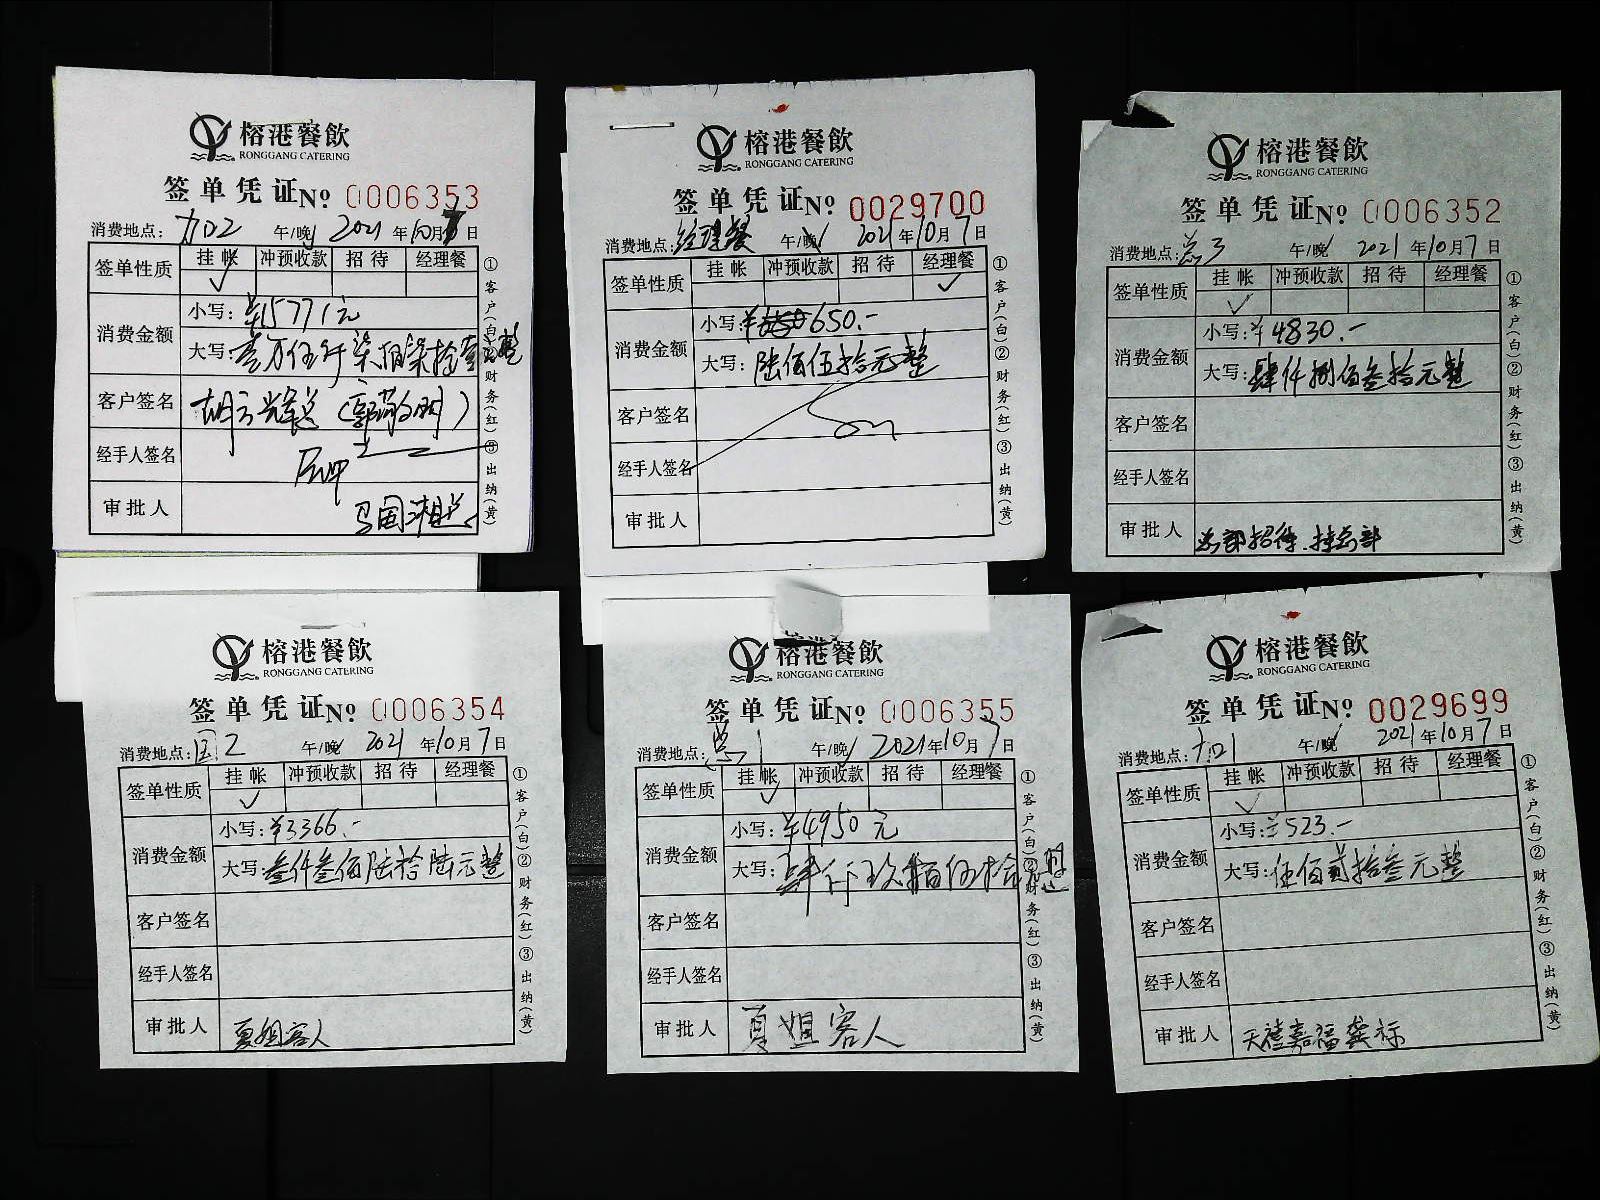 榕港餐飲
RONGGANG CATERING
签单凭证 No 0006353
消费地点: 午/晚 2021年10月7日
签单性质 挂帐 冲预收款 招待 经理餐
✓
消费金额 小写: ¥15771元
大写: 壹万伍仟柒佰柒拾壹元整
客户签名
经手人签名
审批人
①客户(白)②财务(红)③出纳(黄)
榕港餐飲
RONGGANG CATERING
签单凭证 No 0029700
消费地点: 经理餐 午/晚 2021年10月7日
签单性质 挂帐 冲预收款 招待 经理餐
✓
消费金额 小写: ¥650.-
大写: 陆佰伍拾元整
客户签名
经手人签名
审批人
①客户(白)②财务(红)③出纳(黄)
榕港餐飲
RONGGANG CATERING
签单凭证 No 0006352
消费地点: 总3 午/晚 2021年10月7日
签单性质 挂帐 冲预收款 招待 经理餐
✓
消费金额 小写: ¥4830.-
大写: 肆仟捌佰叁拾元整
客户签名
经手人签名
审批人 总部招待.挂总部
①客户(白)②财务(红)③出纳(黄)
榕港餐飲
RONGGANG CATERING
签单凭证 No 0006354
消费地点: 国2 午/晚 2021年10月7日
签单性质 挂帐 冲预收款 招待 经理餐
✓
消费金额 小写: ¥3366.-
大写: 叁仟叁佰陆拾陆元整
客户签名
经手人签名
审批人 夏姐客人
①客户(白)②财务(红)③出纳(黄)
榕港餐飲
RONGGANG CATERING
签单凭证 No 0006355
消费地点: 总1 午/晚 2021年10月7日
签单性质 挂帐 冲预收款 招待 经理餐
✓
消费金额 小写: ¥4950元
大写: 肆仟玖佰伍拾元整
客户签名
经手人签名
审批人 夏姐客人
①客户(白)②财务(红)③出纳(黄)
榕港餐飲
RONGGANG CATERING
签单凭证 No 0029699
消费地点: 午/晚 2021年10月7日
签单性质 挂帐 冲预收款 招待 经理餐
✓
消费金额 小写: ¥523.-
大写: 伍佰贰拾叁元整
客户签名
经手人签名
审批人 天禧嘉福龚标
①客户(白)②财务(红)③出纳(黄)